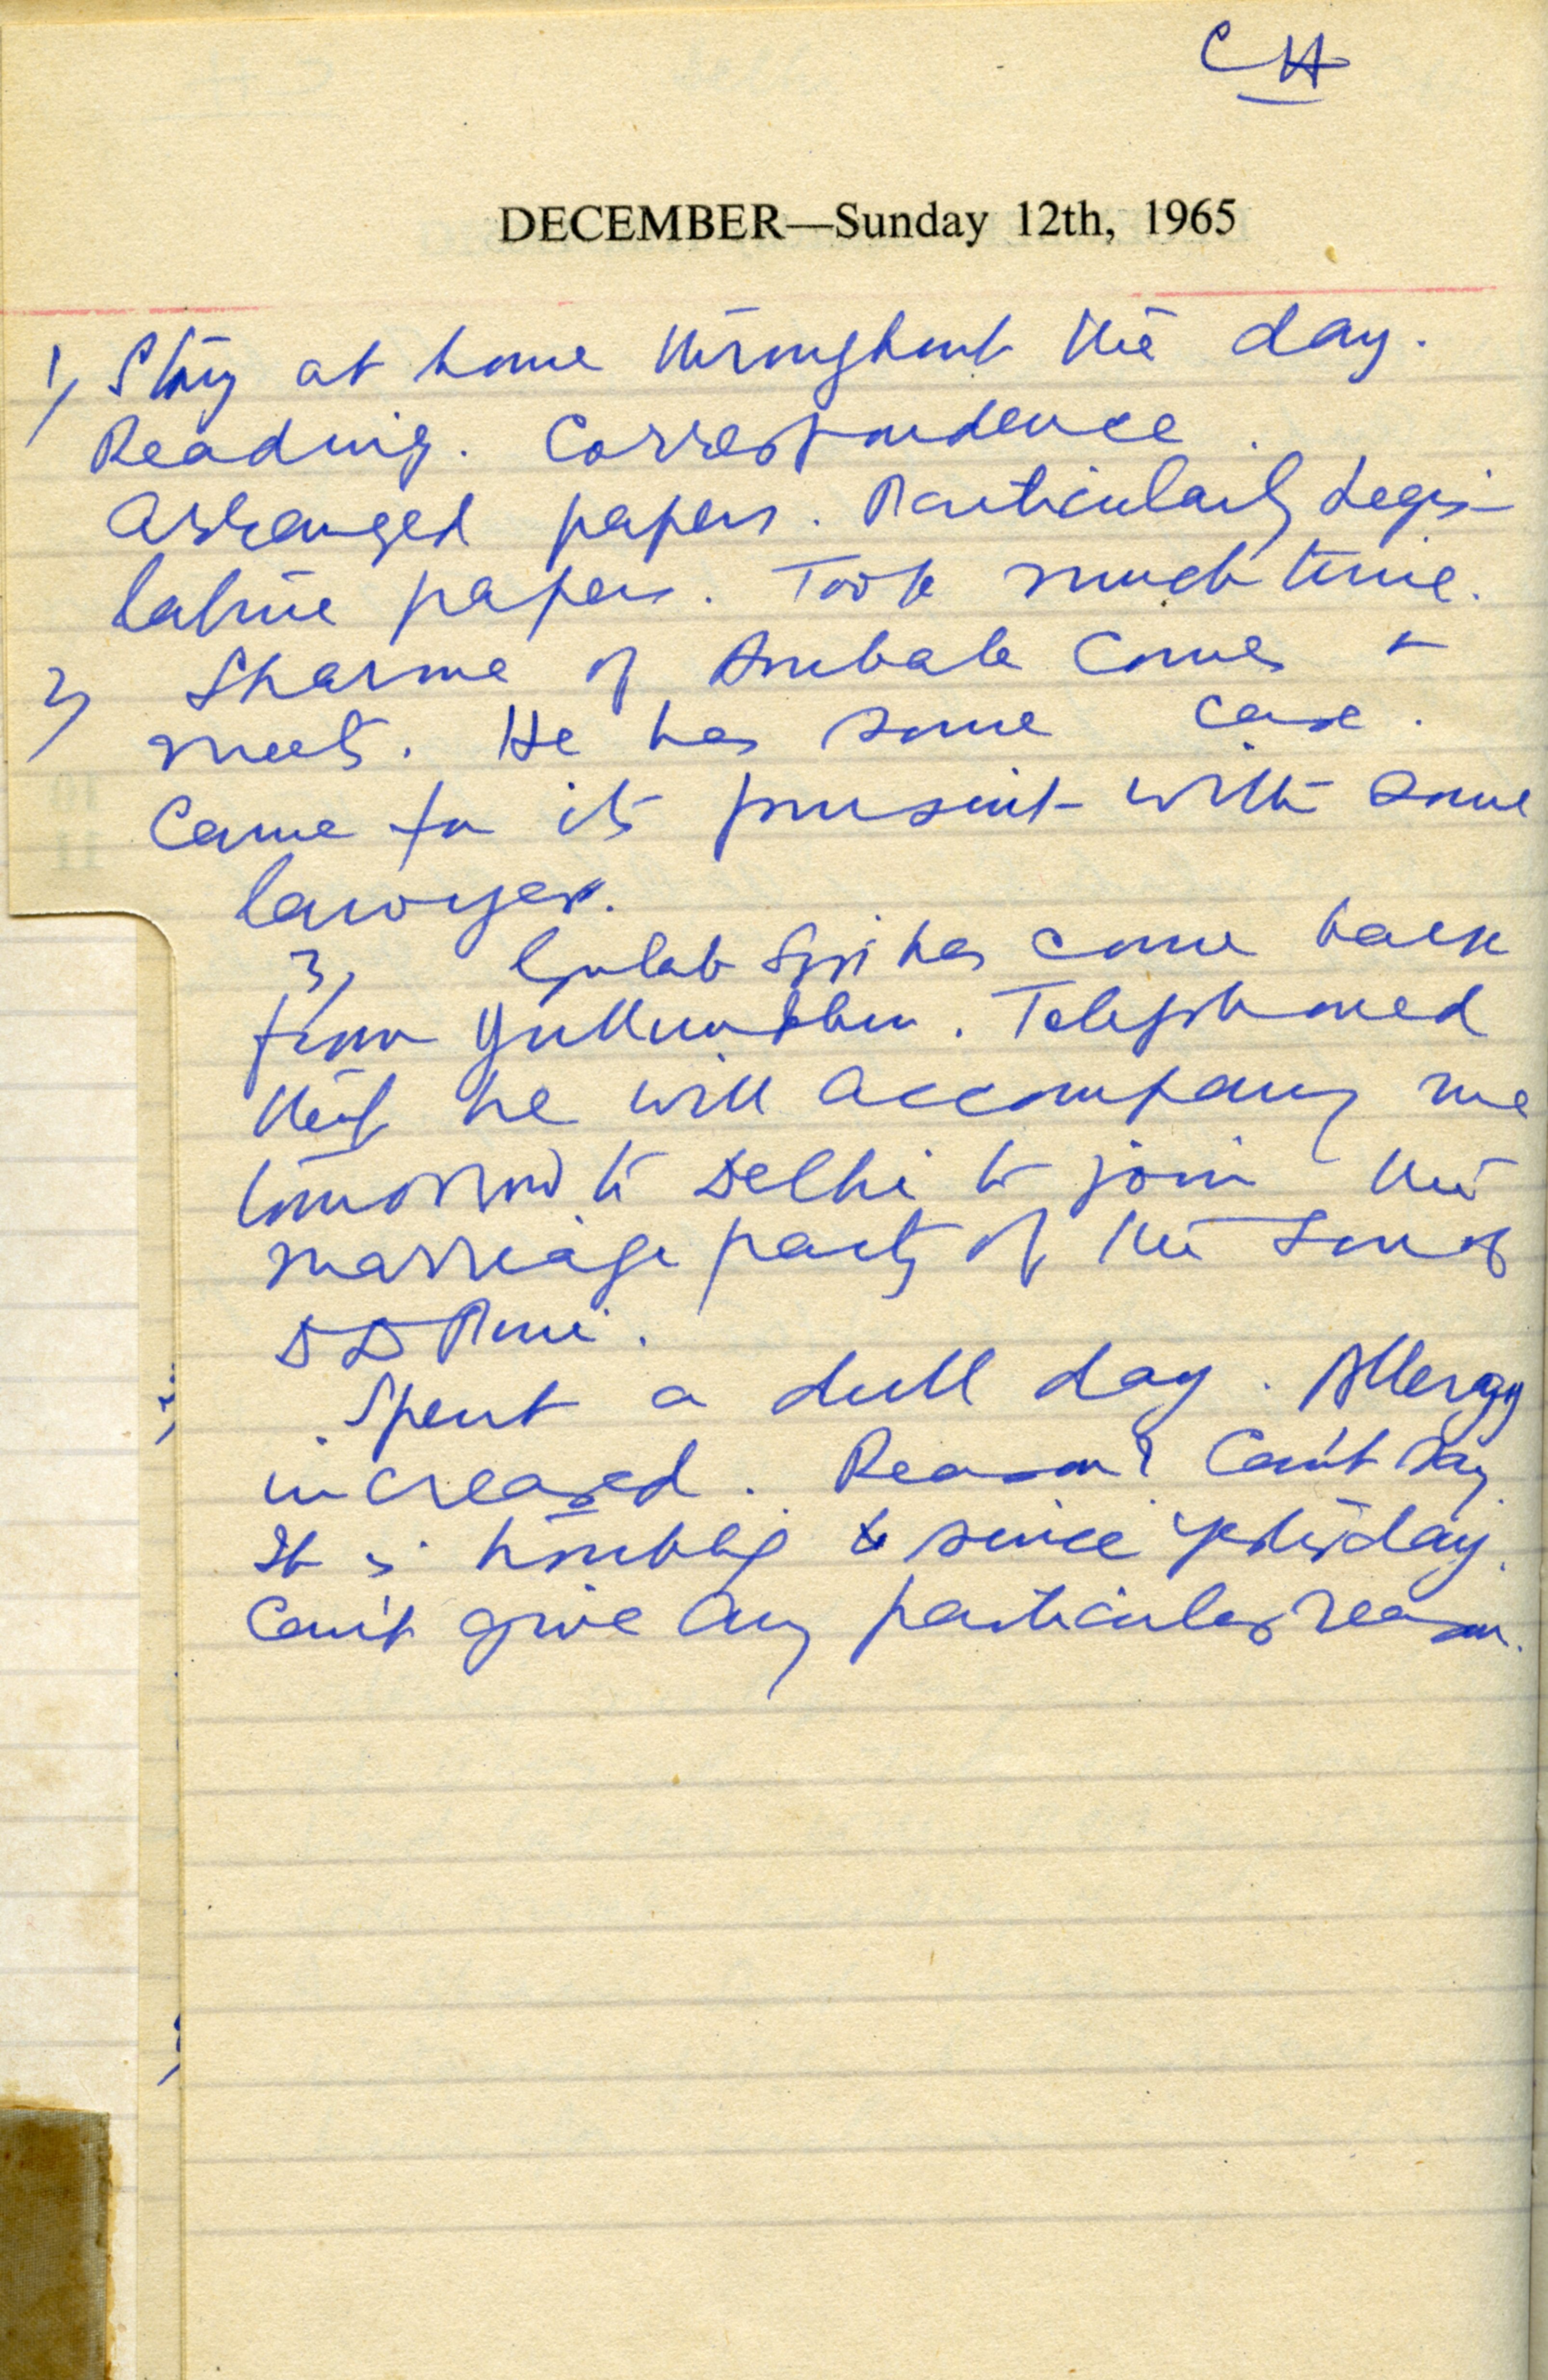 CH
DECEMBER—Sunday 12th, 1965
1) Stay at home throughout the day.
Reading. Correspondence.
Arranged papers. Particularly Legis-
lative papers. Took much time.
2) Sharma of Ambala comes &
meets. He has some case.
Came for its pursuit with some
lawyer.
3) Gulab Singh has come back
from Jullundur. Telephoned
that he will accompany me
tomorrow to Delhi to join the
marriage party of the son of
D D Puri.
Spent a dull day. Allergy
increased. Reason? Can't say.
It is troubling since yesterday.
Can't give any particular reason.